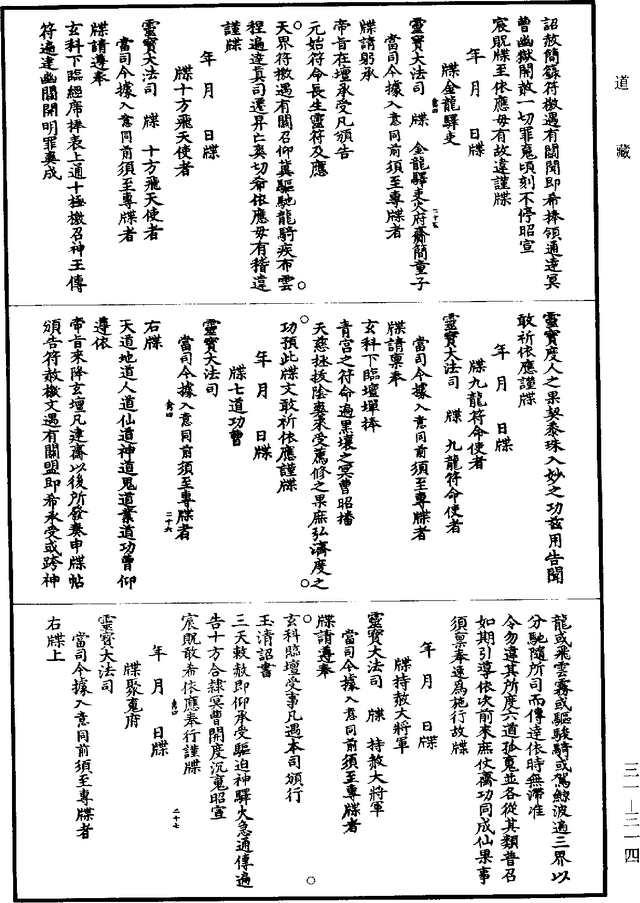 道藏
詔赦簡籙符檄遇有關聞即希捧領通達冥
曹幽獄開赦一切罪魂頃刻不停昭宣
宸貺牒至依應毋有故違謹牒
年 月 日牒
牒金龍驛吏
靈寶大法司 牒 金龍驛吏火府齋簡童子
當司今據入意同前須至專牒者
牒請躬承
帝旨在壇承受凡頒告
元始符命長生靈符及應
天界符檄遇有關召仰冀驅馳龍騎疾布雲
程遍達真司遷昇亡爽切希依應毋有稽違
謹牒
年 月 日牒
牒十方飛天使者
靈寶大法司 牒 十方飛天使者
當司今據入意同前須至專牒者
牒請遵奉
玄科下臨經席捧表上通十極檄召神王傳
符遍達幽關開明罪爽成
靈寶度人之果契黍珠入妙之功茲用告聞
敢祈依應謹牒
年 月 日牒
牒九龍符命使者
靈寶大法司 牒 九龍符命使者
當司今據入意同前須至專牒者
牒請稟奉
玄科下臨壇墠捧
青宮之符命遍黑壤之冥曹昭播
天慈拯拔陰爽來受薦修之果庶弘濟度之
功預此牒文敢祈依應謹牒
年 月 日牒
牒七道功曹
靈寶大法司
當司今據入意同前須至專牒者
二十六
右牒
天道地道人道仙道神道鬼道業道功曹仰
遵依
帝旨來降玄壇凡建齋以後所發奏申牒帖
頒告符赦檄文遇有關盟即希承受或跨神
龍或飛雲霧或驅駿騎或駕鯨波遍三界以
分馳隨所司而傳達依時無滯准
令勿違其所度六道孤魂並各從其類普召
如期引導依次前來庶仗齋功同成仙果事
須稟奉遠爲施行故牒
年 月 日牒
牒持赦大將軍
靈寶大法司 牒 持赦大將軍
當司今據入意同前須至專牒者
牒請遵奉
玄科臨壇受事凡遇本司頒行
玉清詔書
三天赦赦即仰承受驅迫神驛火急通傳遍
告十方合隷冥曹開度沉魂昭宣
宸貺敢希依應奉行謹牒
二十七
年 月 日牒
牒聚魂府
靈寶大法司
當司今據入意同前須至專牒者
右牒上
三一—二一四